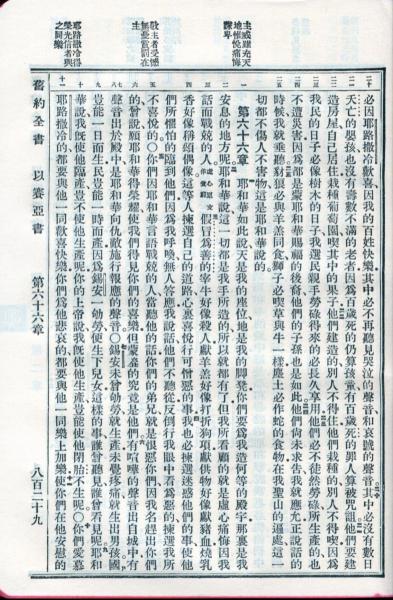 必因耶路撒冷歡喜因我的百姓快樂其中必不再聽見哭泣的聲音和哀號的聲音其中必沒有數日
夭亡的嬰孩也沒有壽數不滿的老者因爲百歲死的仍算孩童有百歲死的罪人算被咒詛他們要建
造房屋自己居住栽種葡萄園喫其中的果子他們建造的別人不得住他們栽種的別人不得喫因爲
我民的日子必像樹木的日子我選民親手勞碌得來的必長久享用他們必不徒然勞碌所生產的也
不遭災害因爲都是蒙耶和華賜福的後裔他們的子孫也是如此他們尚未求告我就應允正說話的
時候我就垂聽豺狼必與羊羔同食獅子必喫草與牛一樣塵土必作蛇的食物在我聖山的遍處這一
切都不傷人不害物這是耶和華說的
第六十六章 耶和華如此說天是我的座位地是我的脚凳你們要爲我造何等的殿宇那裏是我
安息的地方呢耶和華說這一切都是我手所造的所以就都有了但我所看顧的就是虛心痛悔因我
話而戰兢的人假冒爲善的宰牛好像殺人獻羊羔好像打折狗項獻供物好像獻豬血燒乳
香好像稱頌偶像這等人揀選自己的道路心裏喜悅行可憎惡的事我也必揀選迷惑他們的事使他
們所懼怕的臨到他們因爲我呼喚無人答應我說話他們不聽從反倒行我眼中看爲惡的揀選我所
不喜悅的○你們因耶和華言語戰兢的人當聽他的話你們的弟兄就是恨惡你們因我名趕出你們
的曾說願耶和華得榮耀使我們得見你們的喜樂但蒙羞的究竟是他們有喧嘩的聲音出自城中有
聲音出於殿中是耶和華向仇敵施行報應的聲音○錫安未曾劬勞就生產未覺疼痛就生出男孩國
豈能一日而生民豈能一時而產因爲錫安一劬勞便生下兒女這樣的事誰曾聽見誰曾看見呢耶和
華說我既使他臨產豈不使他生產呢你的上帝說我既使他生產豈能使他閉胎不生呢○你們愛慕
耶路撒冷的都要與他一同歡喜快樂你們爲他悲哀的都要與他一同樂上加樂使你們在他安慰的
舊約全書 以賽亞書 第六十六章 八百二十九